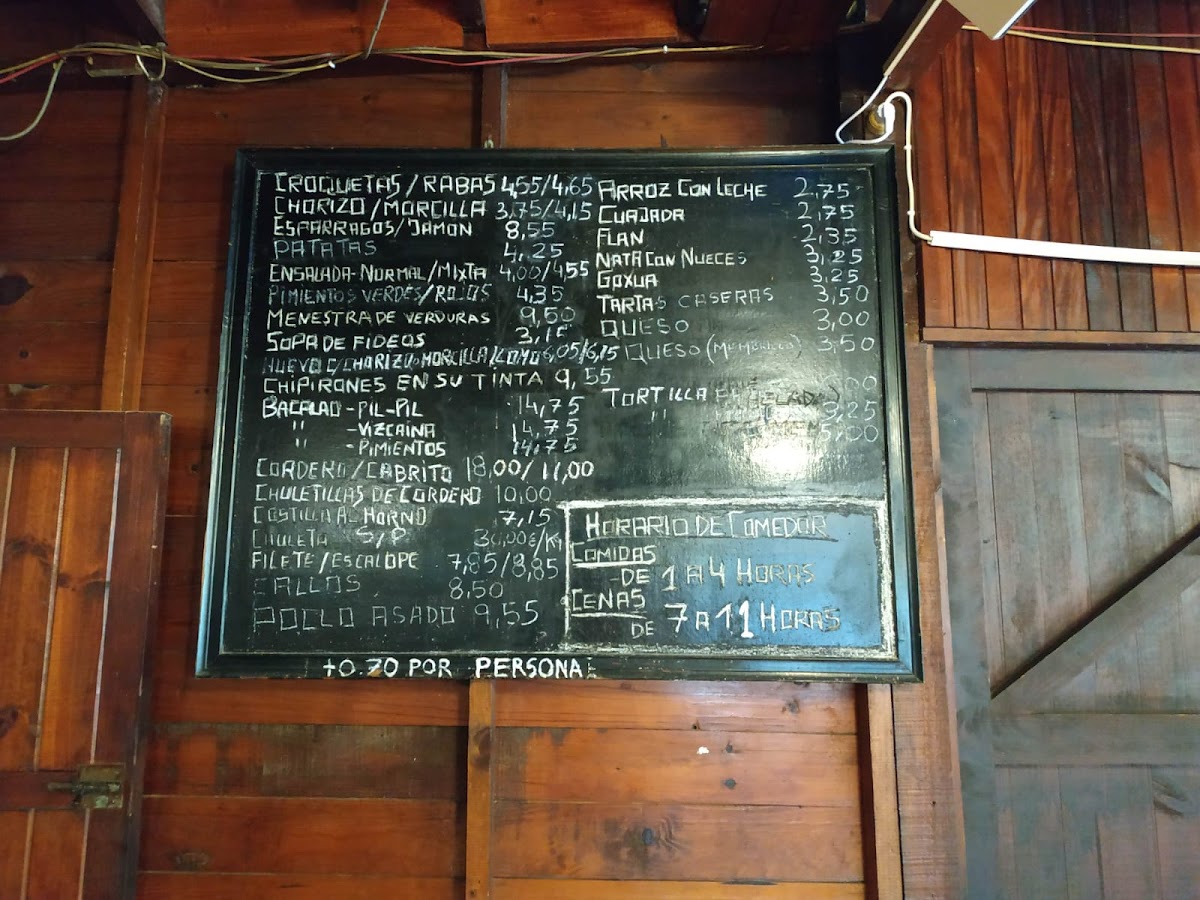 CROQUETAS/RABAS 4,55/4,65
CHORIZO/MORCILLA 3,75/4,15
ESPARRAGOS/JAMON 8,55
PATATAS 4,25
ENSALADA-NORMAL/MIXTA 4,00/4,55
PIMIENTOS VERDES/ROJOS 4,35
MENESTRA DE VERDURAS 9,50
SOPA DE FIDEOS 3,15
HUEVO C/CHORIZO-MORCILLA/LOMO 6,05/6,15
CHIPIRONES EN SU TINTA 9,55
BACALAO-PIL-PIL 14,75
" -VIZCAINA 14,75
" -PIMIENTOS 14,75
CORDERO/CABRITO 18,00/11,00
CHULETILLAS DE CORDERO 10,00
COSTILLA AL HORNO 7,15
CHULETA S/P
FILETE/ESCALOPE 7,85/8,85
CALLOS 8,50
POLLO ASADO 9,55
ARROZ CON LECHE 2,75
CUAJADA 2,75
FLAN 2,35
NATA CON NUECES 3,25
GOXUA 3,25
TARTAS CASERAS 3,50
QUESO 3,00
QUESO (MEMBRILLO) 3,50
TORTILLA
" 3,25
5,00
HORARIO DE COMEDOR
COMIDAS
-DE 1 A 4 HORAS
CENAS
DE 7 A 11 HORAS
+0.70 POR PERSONA